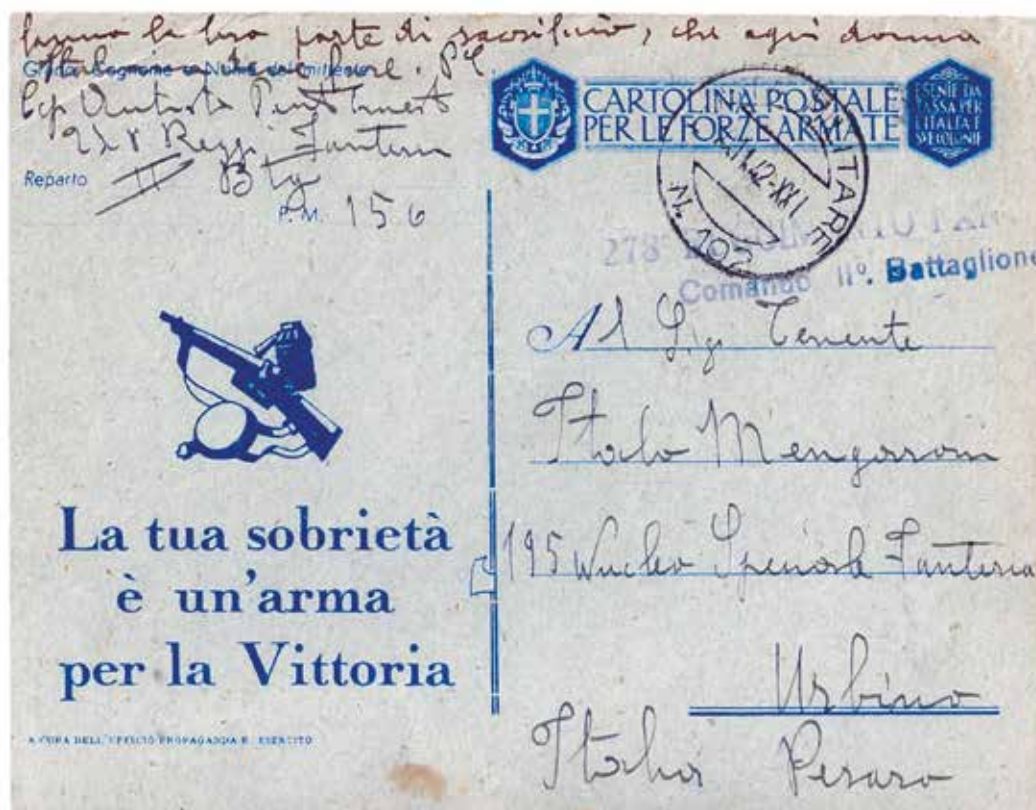 fanno la loro parte di sacrificio, che ogni donna
Grado, Cognome e Nome del mittente
278 Regg. Fanteria
Reparto II Btg
P.M. 156
CARTOLINA POSTALE
PER LE FORZE ARMATE
ESENTE DA
TASSA PER
L'ITALIA E
MILITARE
N. 102
42-XXI
278°
Comando II°. Battaglione
Al Sig. Tenente
Italo Mengaroni
195 Nucleo Speciale Fanteria
Urbino
Italia Pesaro
La tua sobrietà
è un'arma
per la Vittoria
A CURA DELL'UFFICIO PROPAGANDA R. ESERCITO